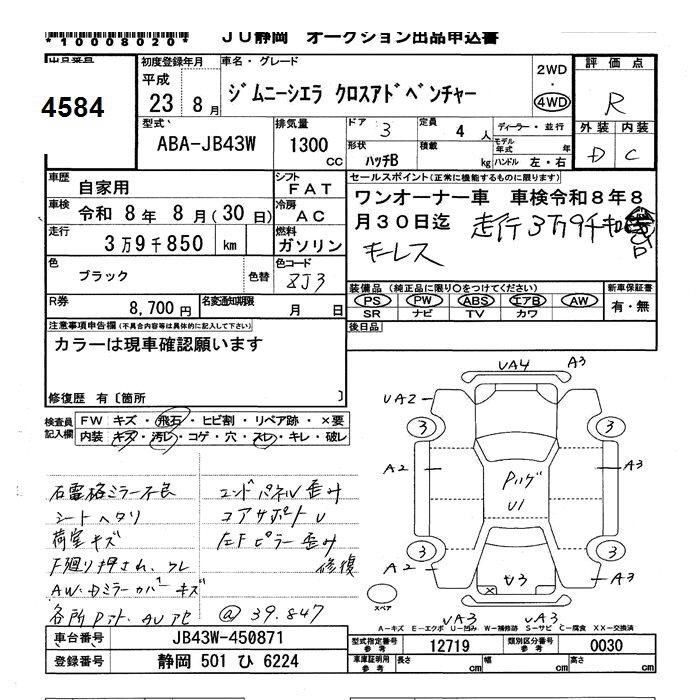 *10008020*
JU静岡 オークション出品申込書
4584
初度登録年月
平成
23 8月
車名・グレード
ジムニーシエラ クロスアドベンチャー
2WD
・
4WD
評価点
R
外装 内装
D C
型式
ABA-JB43W
排気量
1300
CC
ドア 3
定員 4 人
形状 ハッチB
積載 kg
ディーラー・並行
モデル年式 年
ハンドル 左・右
車歴 自家用
シフト FAT
車検 令和 8年 8月(30日)
冷房 AC
走行 3万9千850 km
燃料 ガソリン
色 ブラック
色替
色コード ZJ3
R券 8,700円
名変通知期限 月 日
セールスポイント(正常に機能するものに限ります)
ワンオーナー車 車検令和8年8
月30日迄 走行3万9千
キーレス
装備品(純正品に限り○をつけてください)
新車保証書
PS PW ABS エアB AW
SR ナビ TV カワ
有・無
後日品
注意事項申告欄(不具合内容等は具体的に記入して下さい)
カラーは現車確認願います
修復歴 有〔箇所 〕
検査員記入欄
FW キズ・飛石・ヒビ割・リペア跡・×要
内装 キズ・汚レ・コゲ・穴・スレ・キレ・破レ
ミラー不良
シートヘタリ
荷室キズ
F廻り押され、クレ
AW・Dミラーカバーキズ
各所Pタッチ、AUアセ
エンドパネル歪み
コアサポートU
左Fピラー歪み
修復
@39.847
UA4 A3
UA2
3 3
A2 A3
Pハゲ
U1
A2 A3
3 3
U3
スペア
UA3 UA3
A-キズ E-エクボ U-凹み W-補修跡 S-サビ C-腐食 XX-交換済
車台番号 JB43W-450871
登録番号 静岡 501 ひ 6224
型式指定番号 参考 12719
類別区分番号 参考 0030
車庫証明用 参考 長さ cm 幅 cm 高さ cm